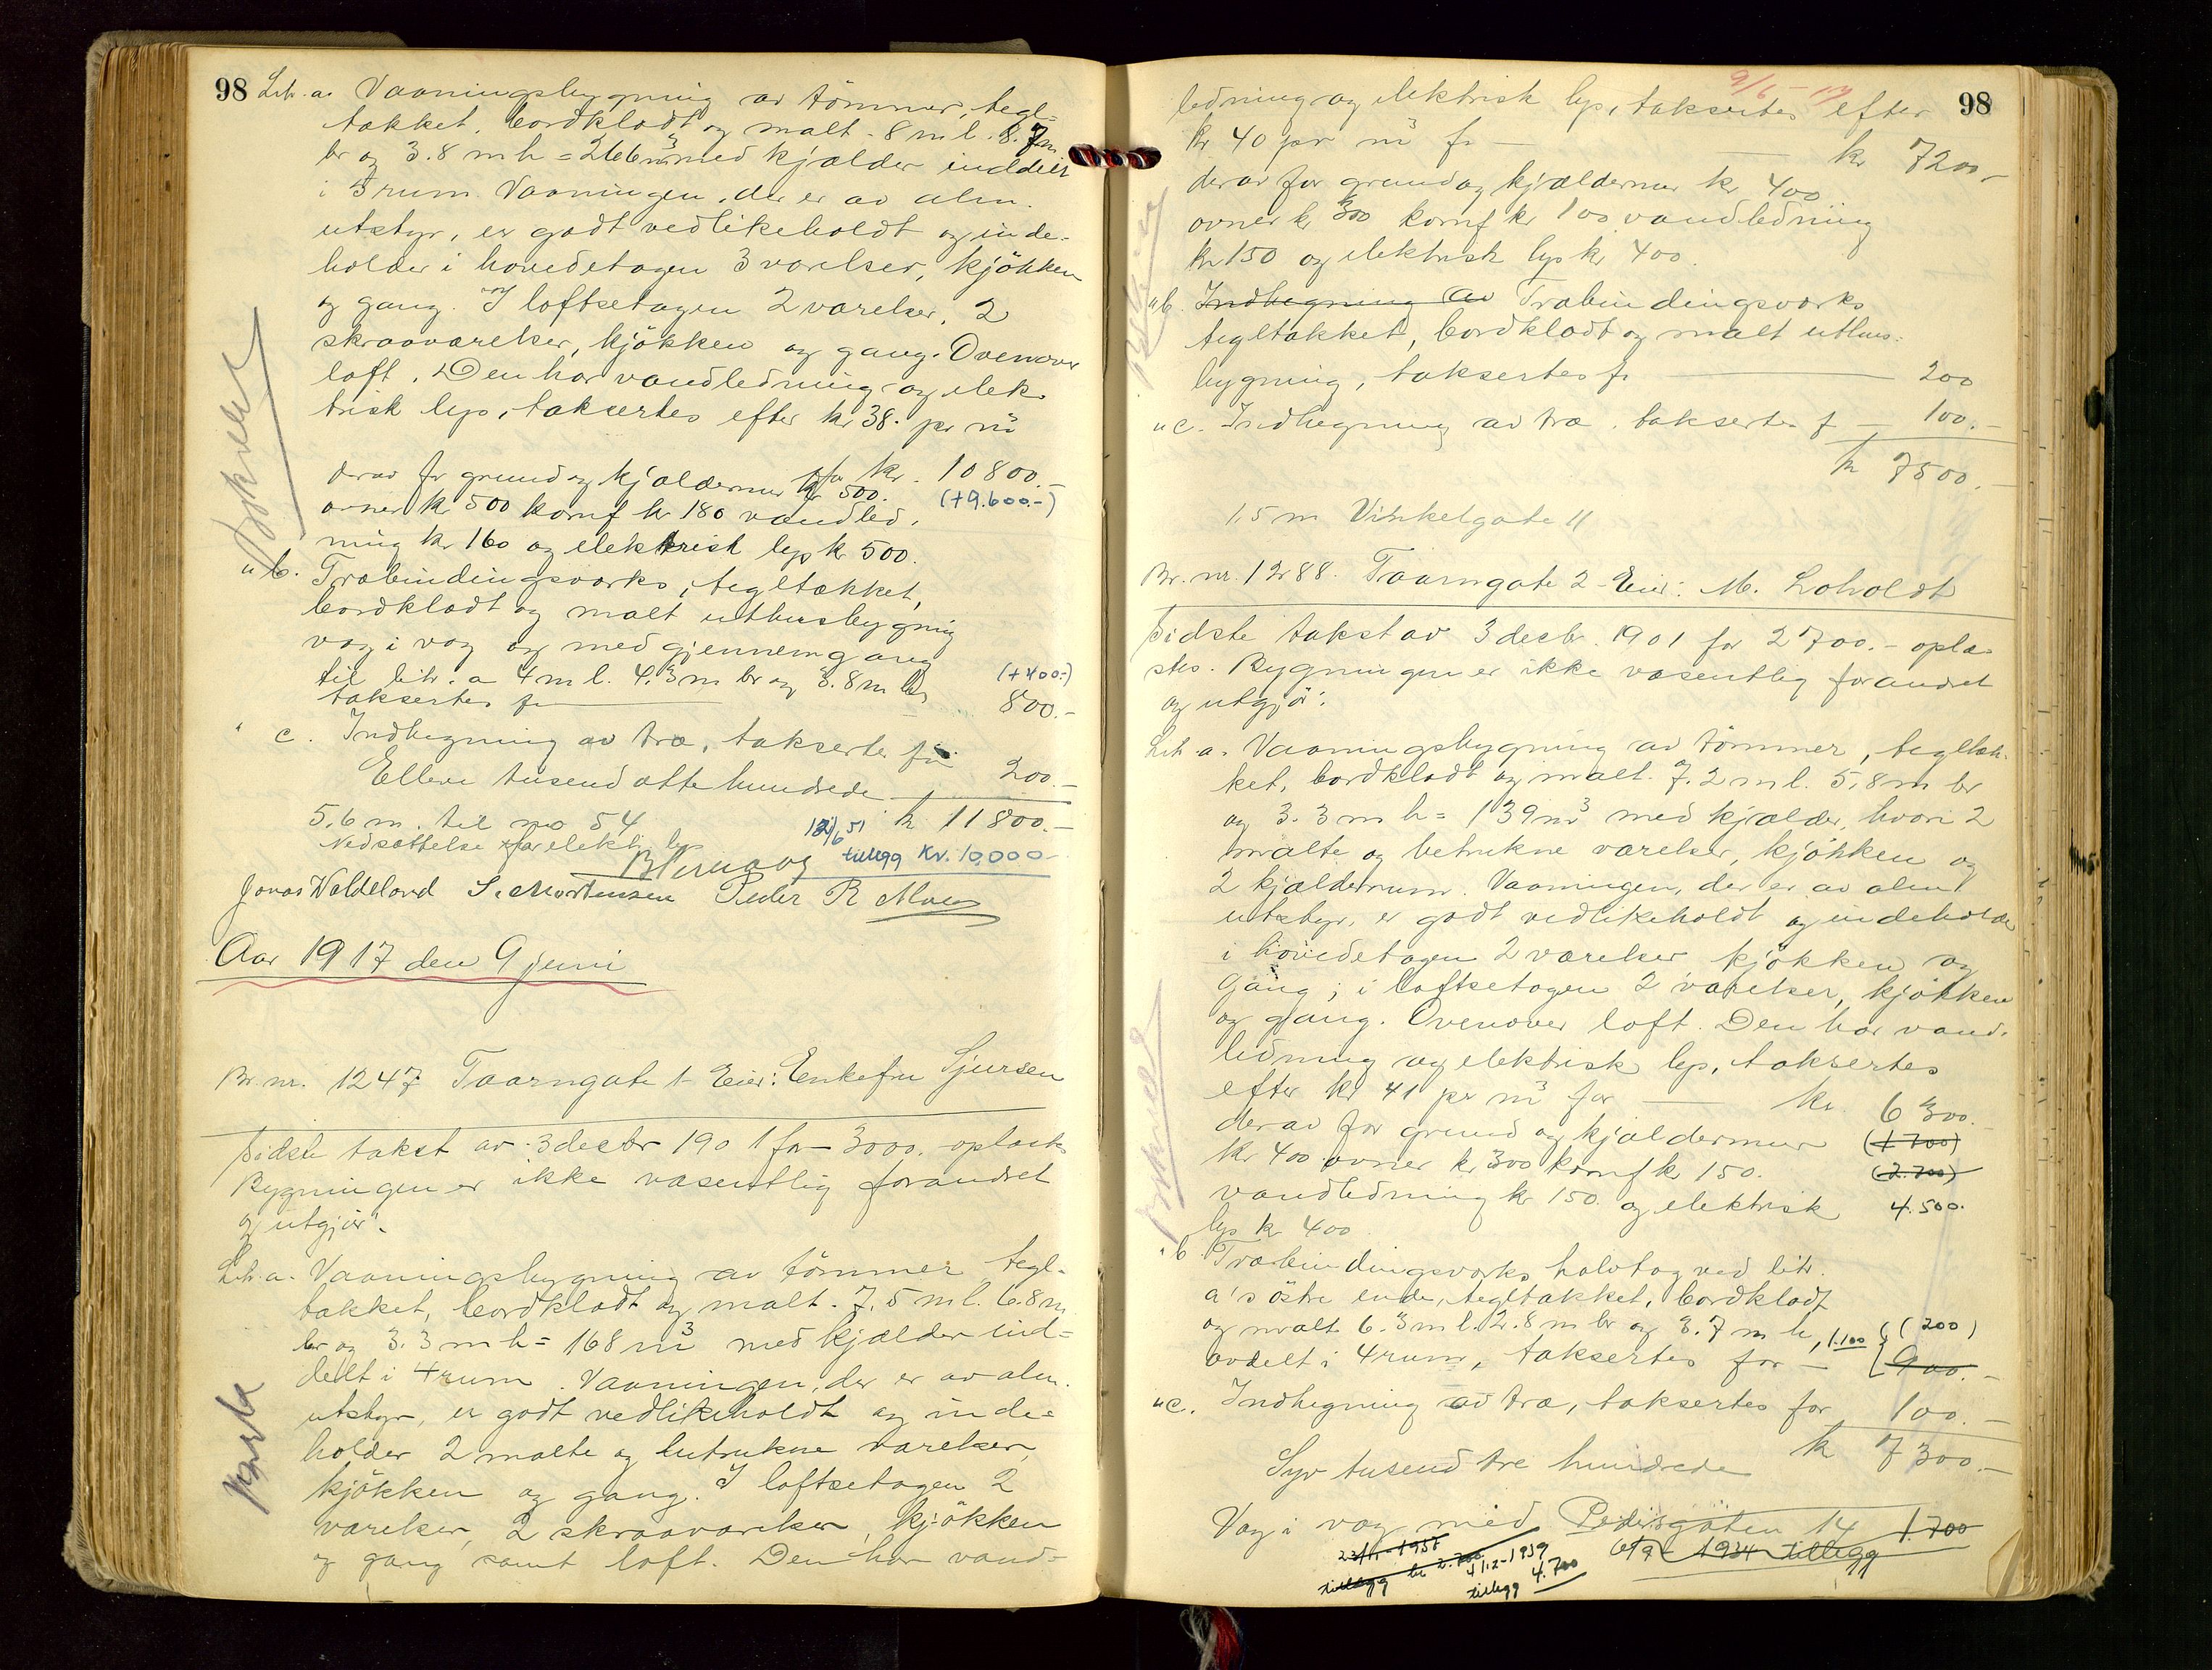 98 Litr. a. Vaaningsbygning av tømmer, tegl-
tækket, bordklædt og malt. 8 m l. 8.7 m
br og 3.8 m h = 266 m³ med kjælder inddelt
i 3 rum. Vaaningen, der er av alm.
utstyr, er godt vedlikeholdt og inde-
holder i hovedetagen 3 værelser, kjökken
og gang. I loftsetagen 2 værelser, 2
skraaværelser, kjökken og gang. Ovenover
loft. Den har vandledning og elek-
trisk lys, takseres efter kr 38.- pr m³
for kr. 10800.-
derav for grund og kjældermur kr 500.
(+9.600.-)
ovner kr 500 komf kr 180 vandled.
ning kr 160 og elektrisk lys kr 500.
" b. Træbindingsværks, tegltækket,
bordklædt og malt uthusbygning
væg i væg og med gjennemgang
til litr. a 4 m l. 4.3 m br og 3.8 m h
(+400.-)
taksertes for 800.-
" c. Indhegning av træ, taksertes for 200.-
Elleve tusend otte hundrede kr 11800.-
5,6 m. til no 54
Nedsættelse for elektr. lys
12/6 51
tillegg Kr. 10,000-
Jonas Waldeland S. Mortensen Peder R Moe
Aar 1917 den 9 juni
Br. nr. 1247 Taarngate 1 - Eier: Enkefru Sjursen
Sidste takst av 3 decbr 1901 for 3000.- oplæstes
Bygningen er ikke væsentlig forandret
og utgjör:
Litr. a. Vaaningsbygning av tömmer tegl-
tækket, bordklædt og malt. 7,5 m l. 6.8 m
br og 3.3 m h = 168 m³ med kjælder ind-
delt i 4 rum. Vaaningen, der er av alm.
utstyr, er godt vedlikeholdt og inde-
holder 2 malte og betrukne værelser,
kjökken og gang. I loftsetagen 2
værelser, 2 skraaværelser, kjökken
og gang samt loft. Den har vand-
9/6 - 17
98
ledning og elektrisk lys, takseres efter
kr 40 pr m³ for kr 7200.-
derav for grund og kjældermur kr 400
ovner kr 300 komf kr 100 vandledning
kr 150 og elektrisk lys kr 400.
" b. Indhegning av Træbindingsværks
tegltækket, bordklædt og malt uthus-
bygning, taksertes for 200
" c. Indhegning av træ, takserte f 100.-
kr 7500.-
1,5 m Vinkelgate 11
Br. nr. 1288. Taarngate 2 - Eier: M. Loholdt
Sidste takst av 3 decbr. 1901 for 2700.- oplæ-
stes. Bygningen er ikke væsentlig forandret
og utgjör:
Litr a. Vaaningsbygning av tömmer, tegltæk-
ket, bordklædt og malt. 7.2 m l. 5,8 m br
og 3.3 m h = 139 m³ med kjælder, hvori 2
malte og betrukne værelser, kjökken og
2 kjælderrum. Vaaningen, der er av alm
utstyr, er godt vedlikeholdt og indeholder
i hovedetagen 2 værelser kjökken og
gang; i loftsetagen 2 værelser, kjökken
og gang. Ovenover loft. Den har vand-
ledning og elektrisk lys, taksertes
efter kr 41 pr m³ for kr. 6300.-
derav for grund og kjældermur (1700)
kr 400 ovner kr 300 komf kr 150. (2.700)
vandledning kr 150. og elektrisk 4.500.
lys kr 400
" b. Træbindingsværks halvtag ved litr.
a's östre ende, tegltækket, bordklædt
og malt 6.3 m l. 2.8 m br og 3.7 m h, 1.100 (200)
avdelt i 4 rum, taksertes for 900.-
" c. Indhegning av træ, taksertes for 100.-
Syv tusend tre hundrede kr 7300.-
Væg i væg med Pedersgaten 14 1.700
1934 tillegg
tillegg kr 2.700
4/12-1939
tillegg 4.700